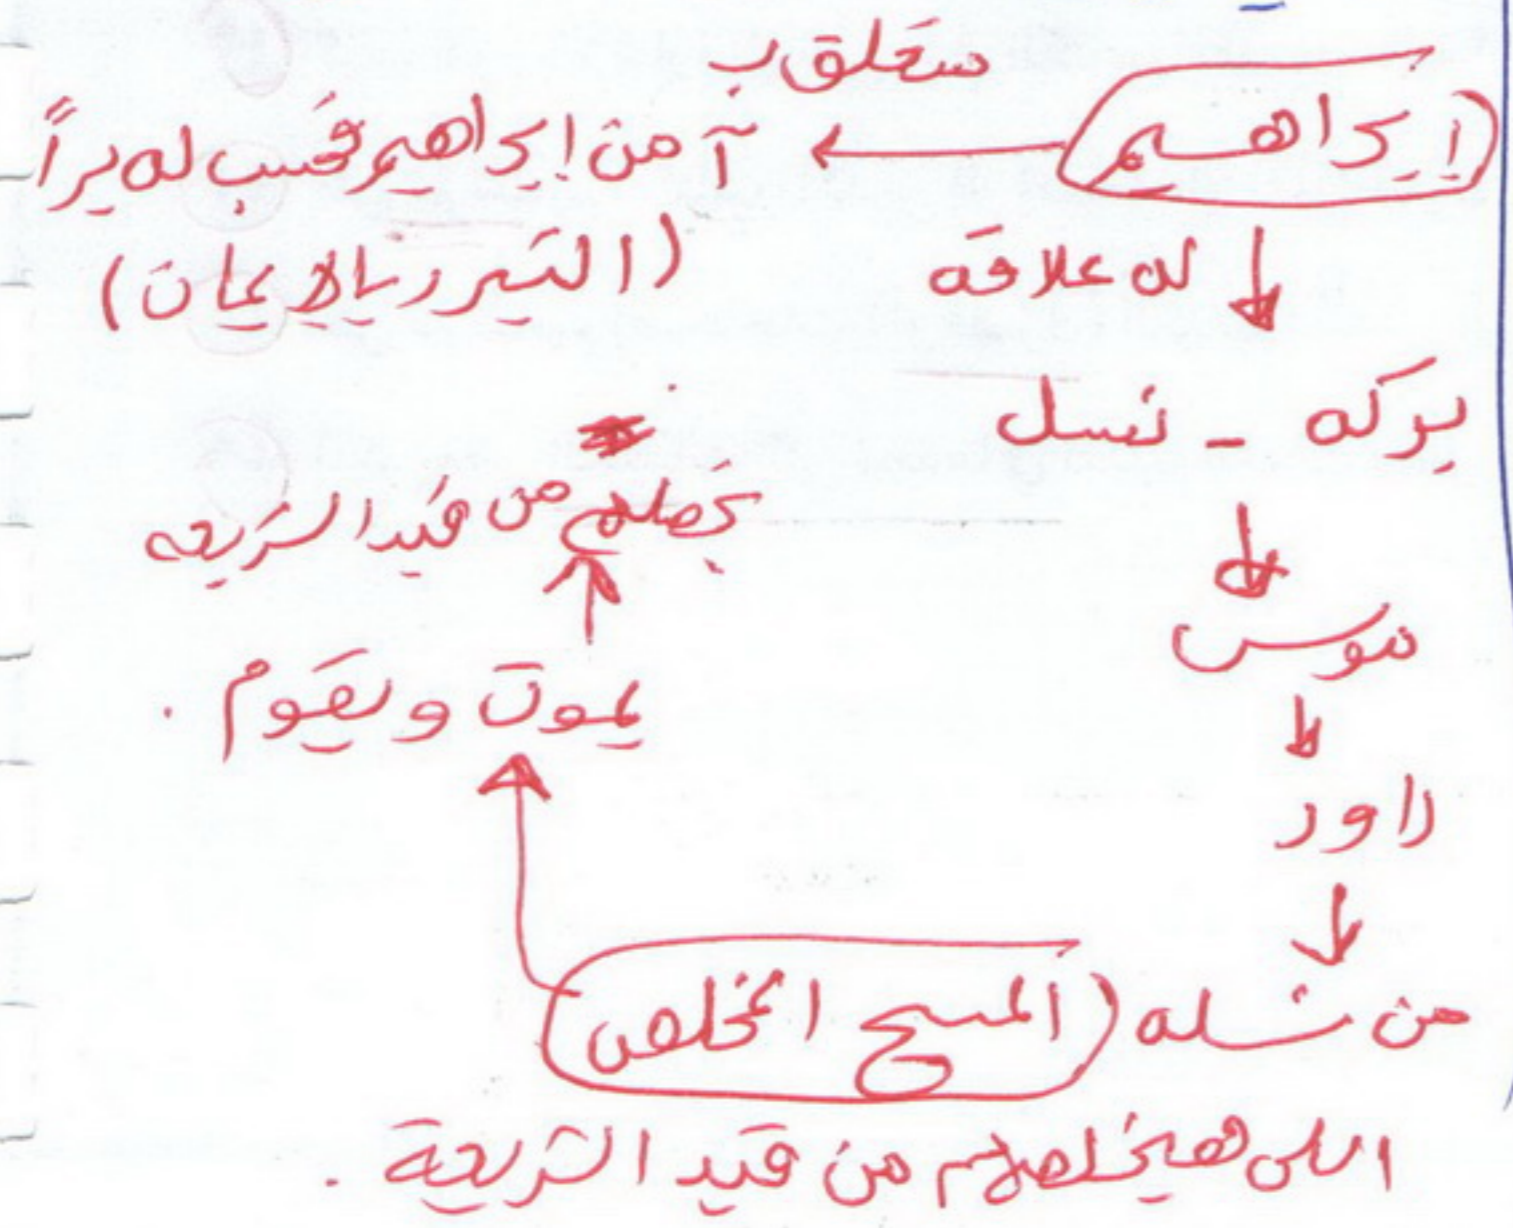 ابراهيم
متعلق ب
آمن إبراهيم فحسب له براً
(التبرر بالإيمان)
له علاقه
بركه - نسل
موسى
داود
من نسله (المسيح المخلص)
اللى هيخلصهم من قيد الشريعة.
يموت ويقوم.
يخصلهم من قيد الشريعه